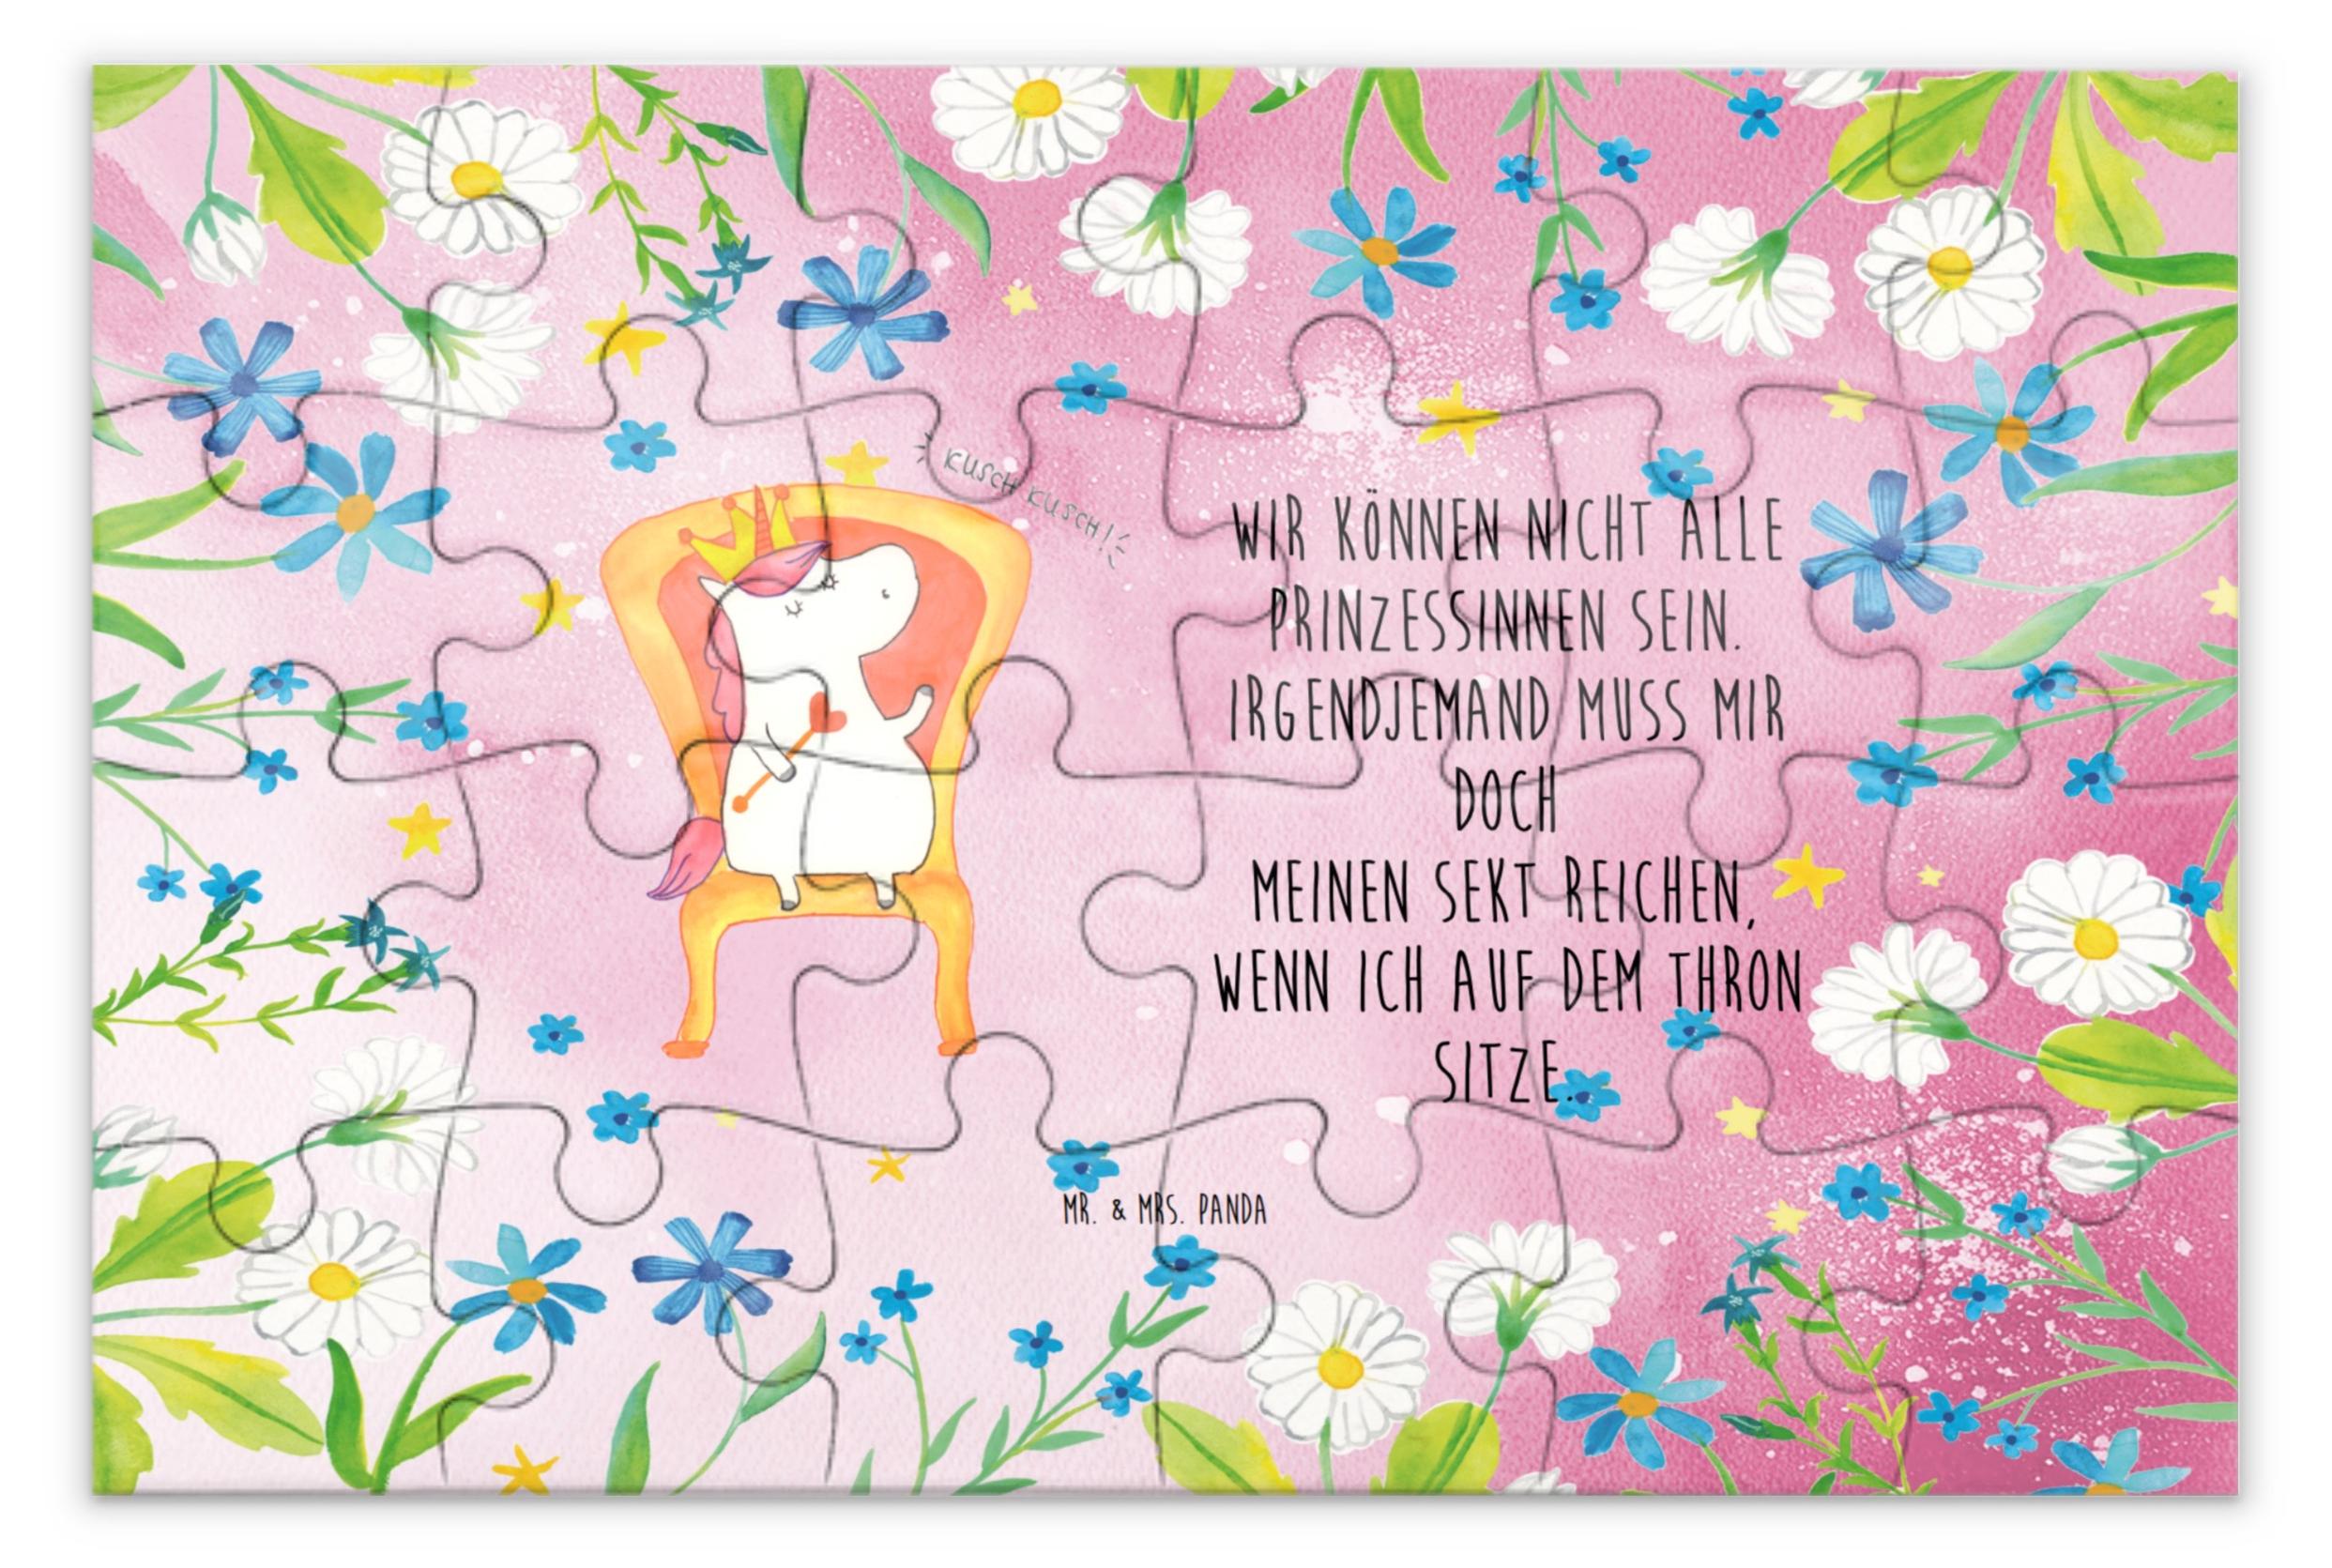 KUSCH KUSCH!
WIR KÖNNEN NICHT ALLE
PRINZESSINNEN SEIN.
IRGENDJEMAND MUSS MIR
DOCH
MEINEN SEKT REICHEN,
WENN ICH AUF DEM THRON
SITZE.
MR. & MRS. PANDA